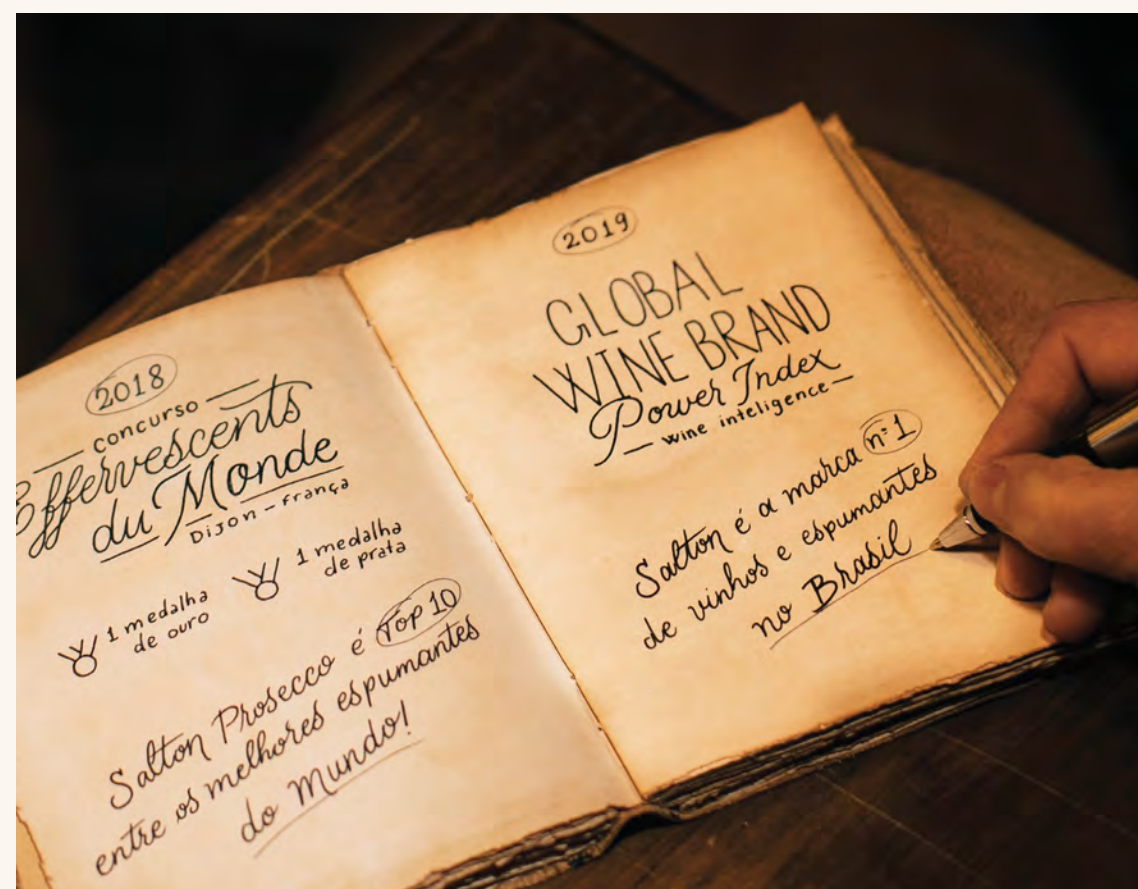 2018
concurso
Effervescents
du Monde
Dijon - França
1 medalha
de ouro
1 medalha
de prata
Salton Prosecco é Top 10
entre os melhores espumantes
do Mundo!
2019
GLOBAL
WINE BRAND
Power Index
wine inteligence
Salton é a marca nº 1
de vinhos e espumantes
no Brasil